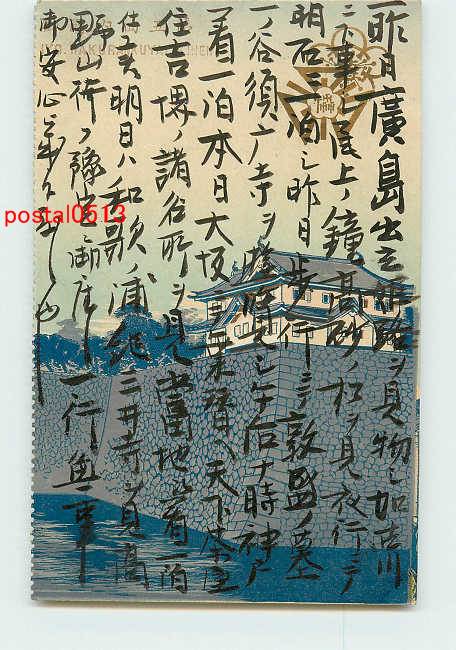 一昨日廣島出立姫路ヲ見物シ加古川
ニ下車シ尾上ノ鐘高砂ノ松ヲ見夜行ニテ
明石ニ一泊シ昨日歩行ニテ敦盛ノ墓
一ノ谷須广寺ヲ シ午后十時神戸
着一泊本日大坂ニ来 天下茶屋
住吉堺ノ諸名所ヲ見當地ニ着一泊
仕候明日ハ和歌ノ浦紀三井寺ヲ見高
野山 ノ豫定ニ御座
一行無事
御安心
postal0513